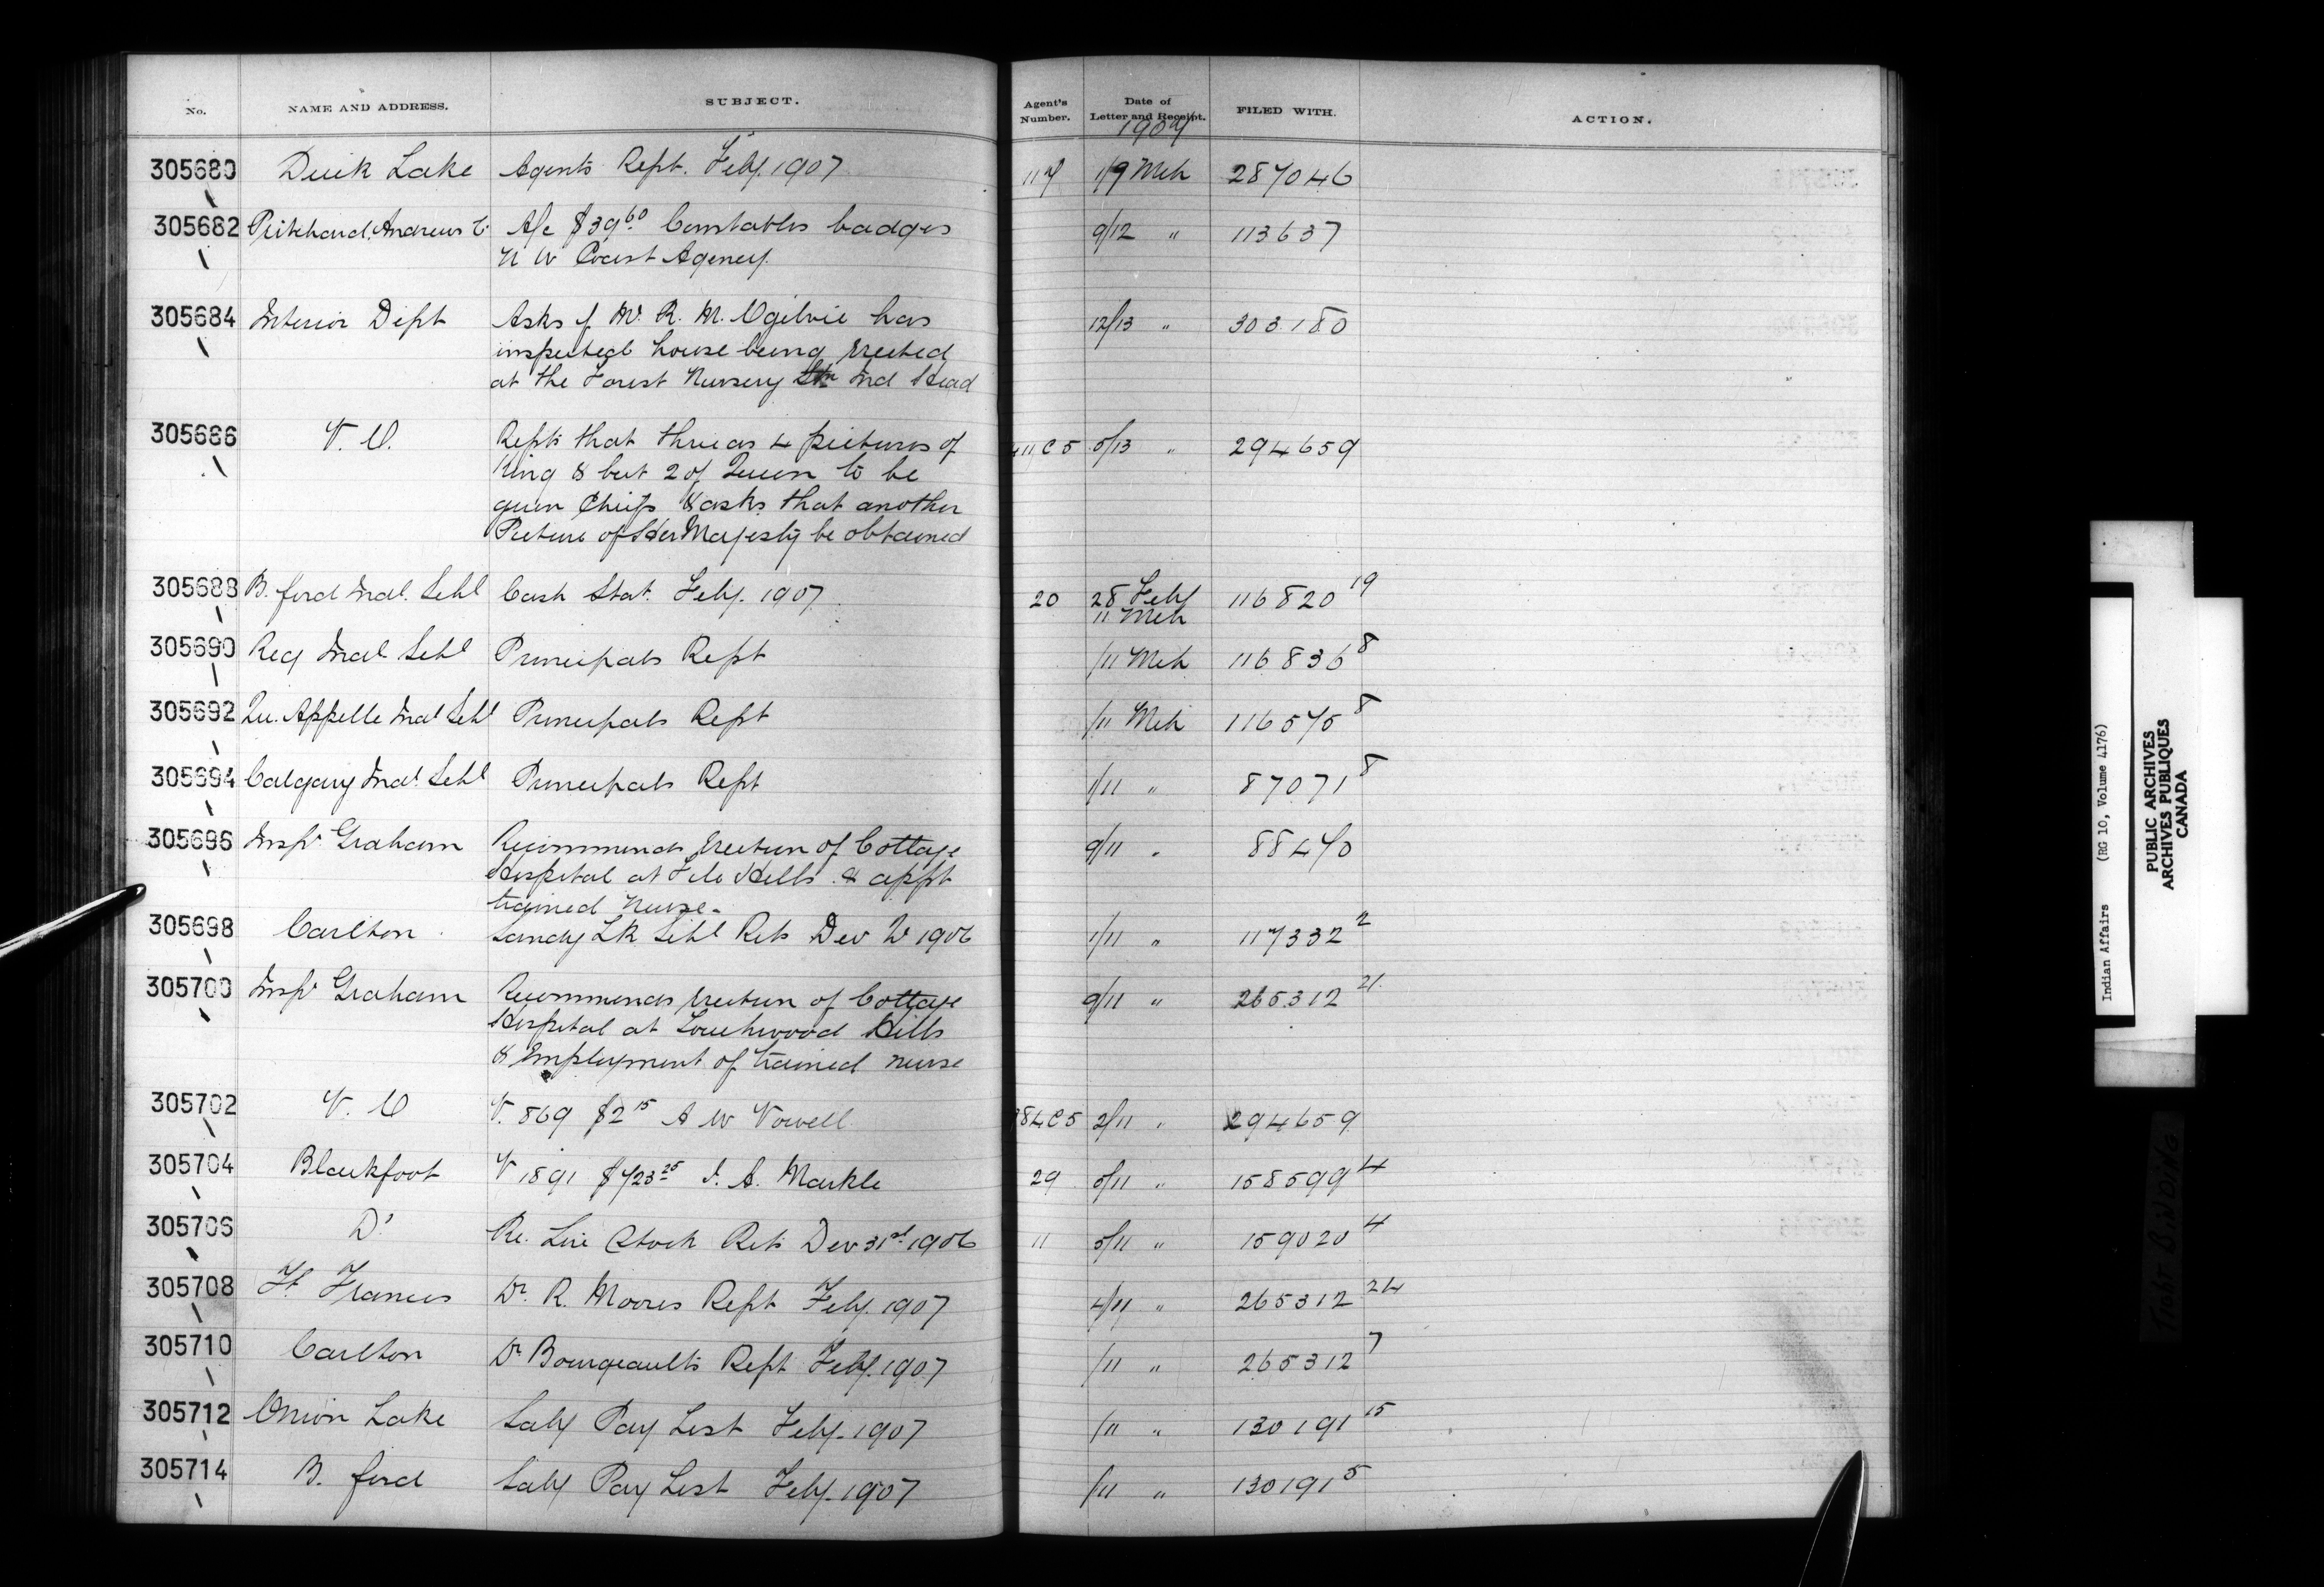 No. NAME AND ADDRESS. SUBJECT. Agent's Number. Date of Letter and Receipt. FILED WITH. ACTION.
1907
305680 Duck Lake Agents Rept. Feby. 1907 117 1/9 Mch 287046
305682 Pritchard, Andrews C. A/c $39.60 Constables badges 9/12 " 113637
N W Coast Agency.
305684 Interior Dept Asks if Mr. R. M. Ogilvie has 12/13 " 303180
inspected house being erected
at the Forest Nursery Stn Ind Head
305686 V. O. Repts that there are 4 pictures of 411 C 5 5/13 " 294659
King & but 2 of Queen to be
given Chiefs & asks that another
Picture of Her Majesty be obtained
305688 B. ford Indl. Schl Cash Stat. Feby. 1907 20 28 Feby 116820 19
11 Mch
305690 Reg Indl Schl Principals Rept /11 Mch 116836 8
305692 Qu. Appelle Indl Schl Principals Rept /11 Mch 116575 8
305694 Calgary Indl Schl Principals Rept 1/11 " 87071 8
305696 Inspr Graham Recommends erection of Cottage 9/11 " 88470
Hospital at File Hills & appt
trained nurse.
305698 Carlton Sandy Lk Schl Rets Dec Qr 1906 1/11 " 117332 2
305700 Inspr Graham Recommends erection of Cottage 9/11 " 265312 21
Hospital at Touchwood Hills
& Employment of trained nurse
305702 V. O V. 869 $2.15 A W Vowell 84 C 5 2/11 " 294659
305704 Blackfoot V 1891 $723.25 J. A. Markle 29 5/11 " 158599 4
305706 Do Re. Live Stock Rets Dec 31st 1906 11 5/11 " 159020 4
305708 Ft Frances Dr. R. Moores Rept Feby. 1907 4/11 " 265312 24
305710 Carlton Dr Bourgeaults Rept Feby. 1907 /11 " 265312 7
305712 Onion Lake Saly Pay List Feby. 1907 /11 " 130191 15
305714 B. ford Saly Pay List Feby. 1907 /11 " 130191 5
Indian Affairs (RG 10, Volume 4176)
PUBLIC ARCHIVES
ARCHIVES PUBLIQUES
CANADA
TIGHT BINDING